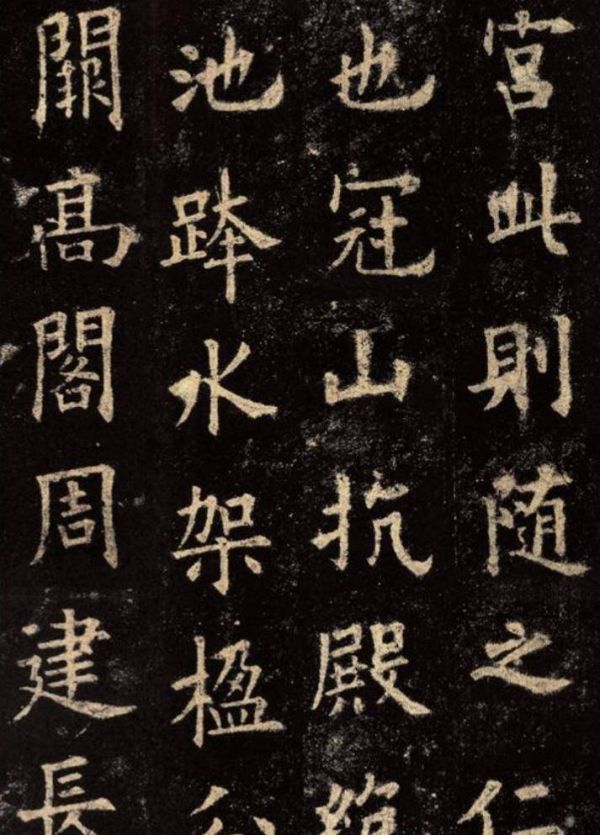 宮此則随之仁
也冠山抗殿絶
池跨水架楹分
闕高閣周建長